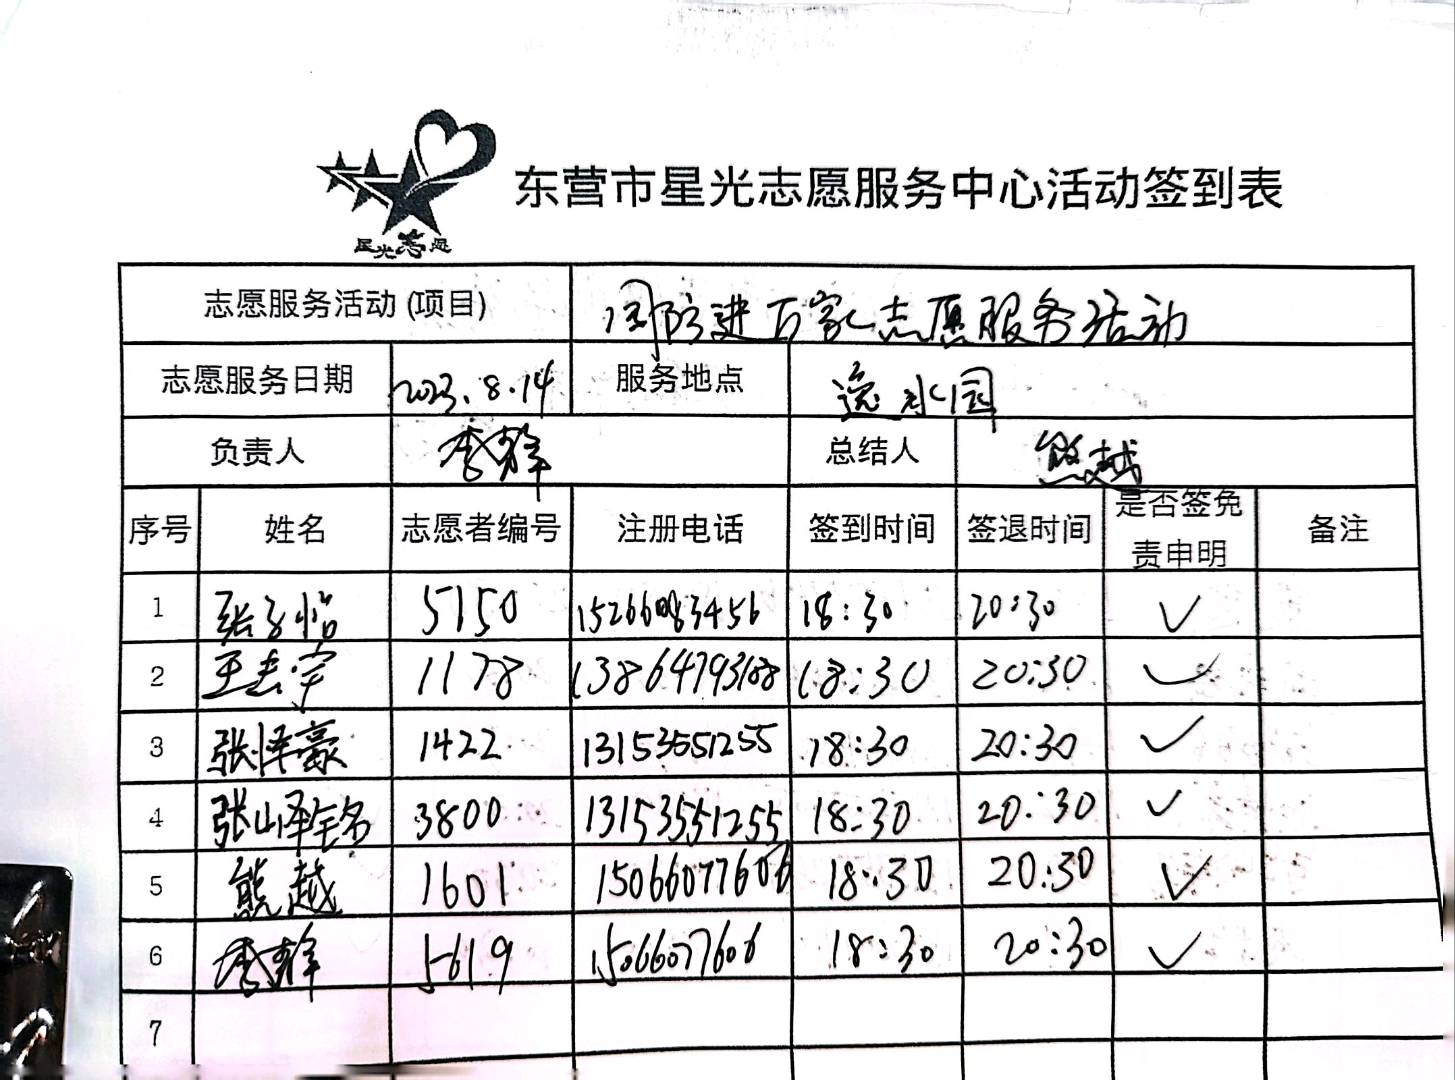 星光志愿
东营市星光志愿服务中心活动签到表
志愿服务活动 (项目) 国防进万家志愿服务活动
志愿服务日期 2023.8.14 服务地点 逸水园
负责人 李群 总结人 熊越
序号 姓名 志愿者编号 注册电话 签到时间 签退时间 是否签免责申明 备注
1 张子怡 5150 15266083456 18:30 20:30 ✓
2 王志宇 1178 13864793188 18:30 20:30 ✓
3 张泽豪 1422 13153551255 18:30 20:30 ✓
4 张山泽铭 3800 13153551255 18:30 20:30 ✓
5 熊越 1601 15066077606 18:30 20:30 ✓
6 李群 5619 15066077606 18:30 20:30 ✓
7